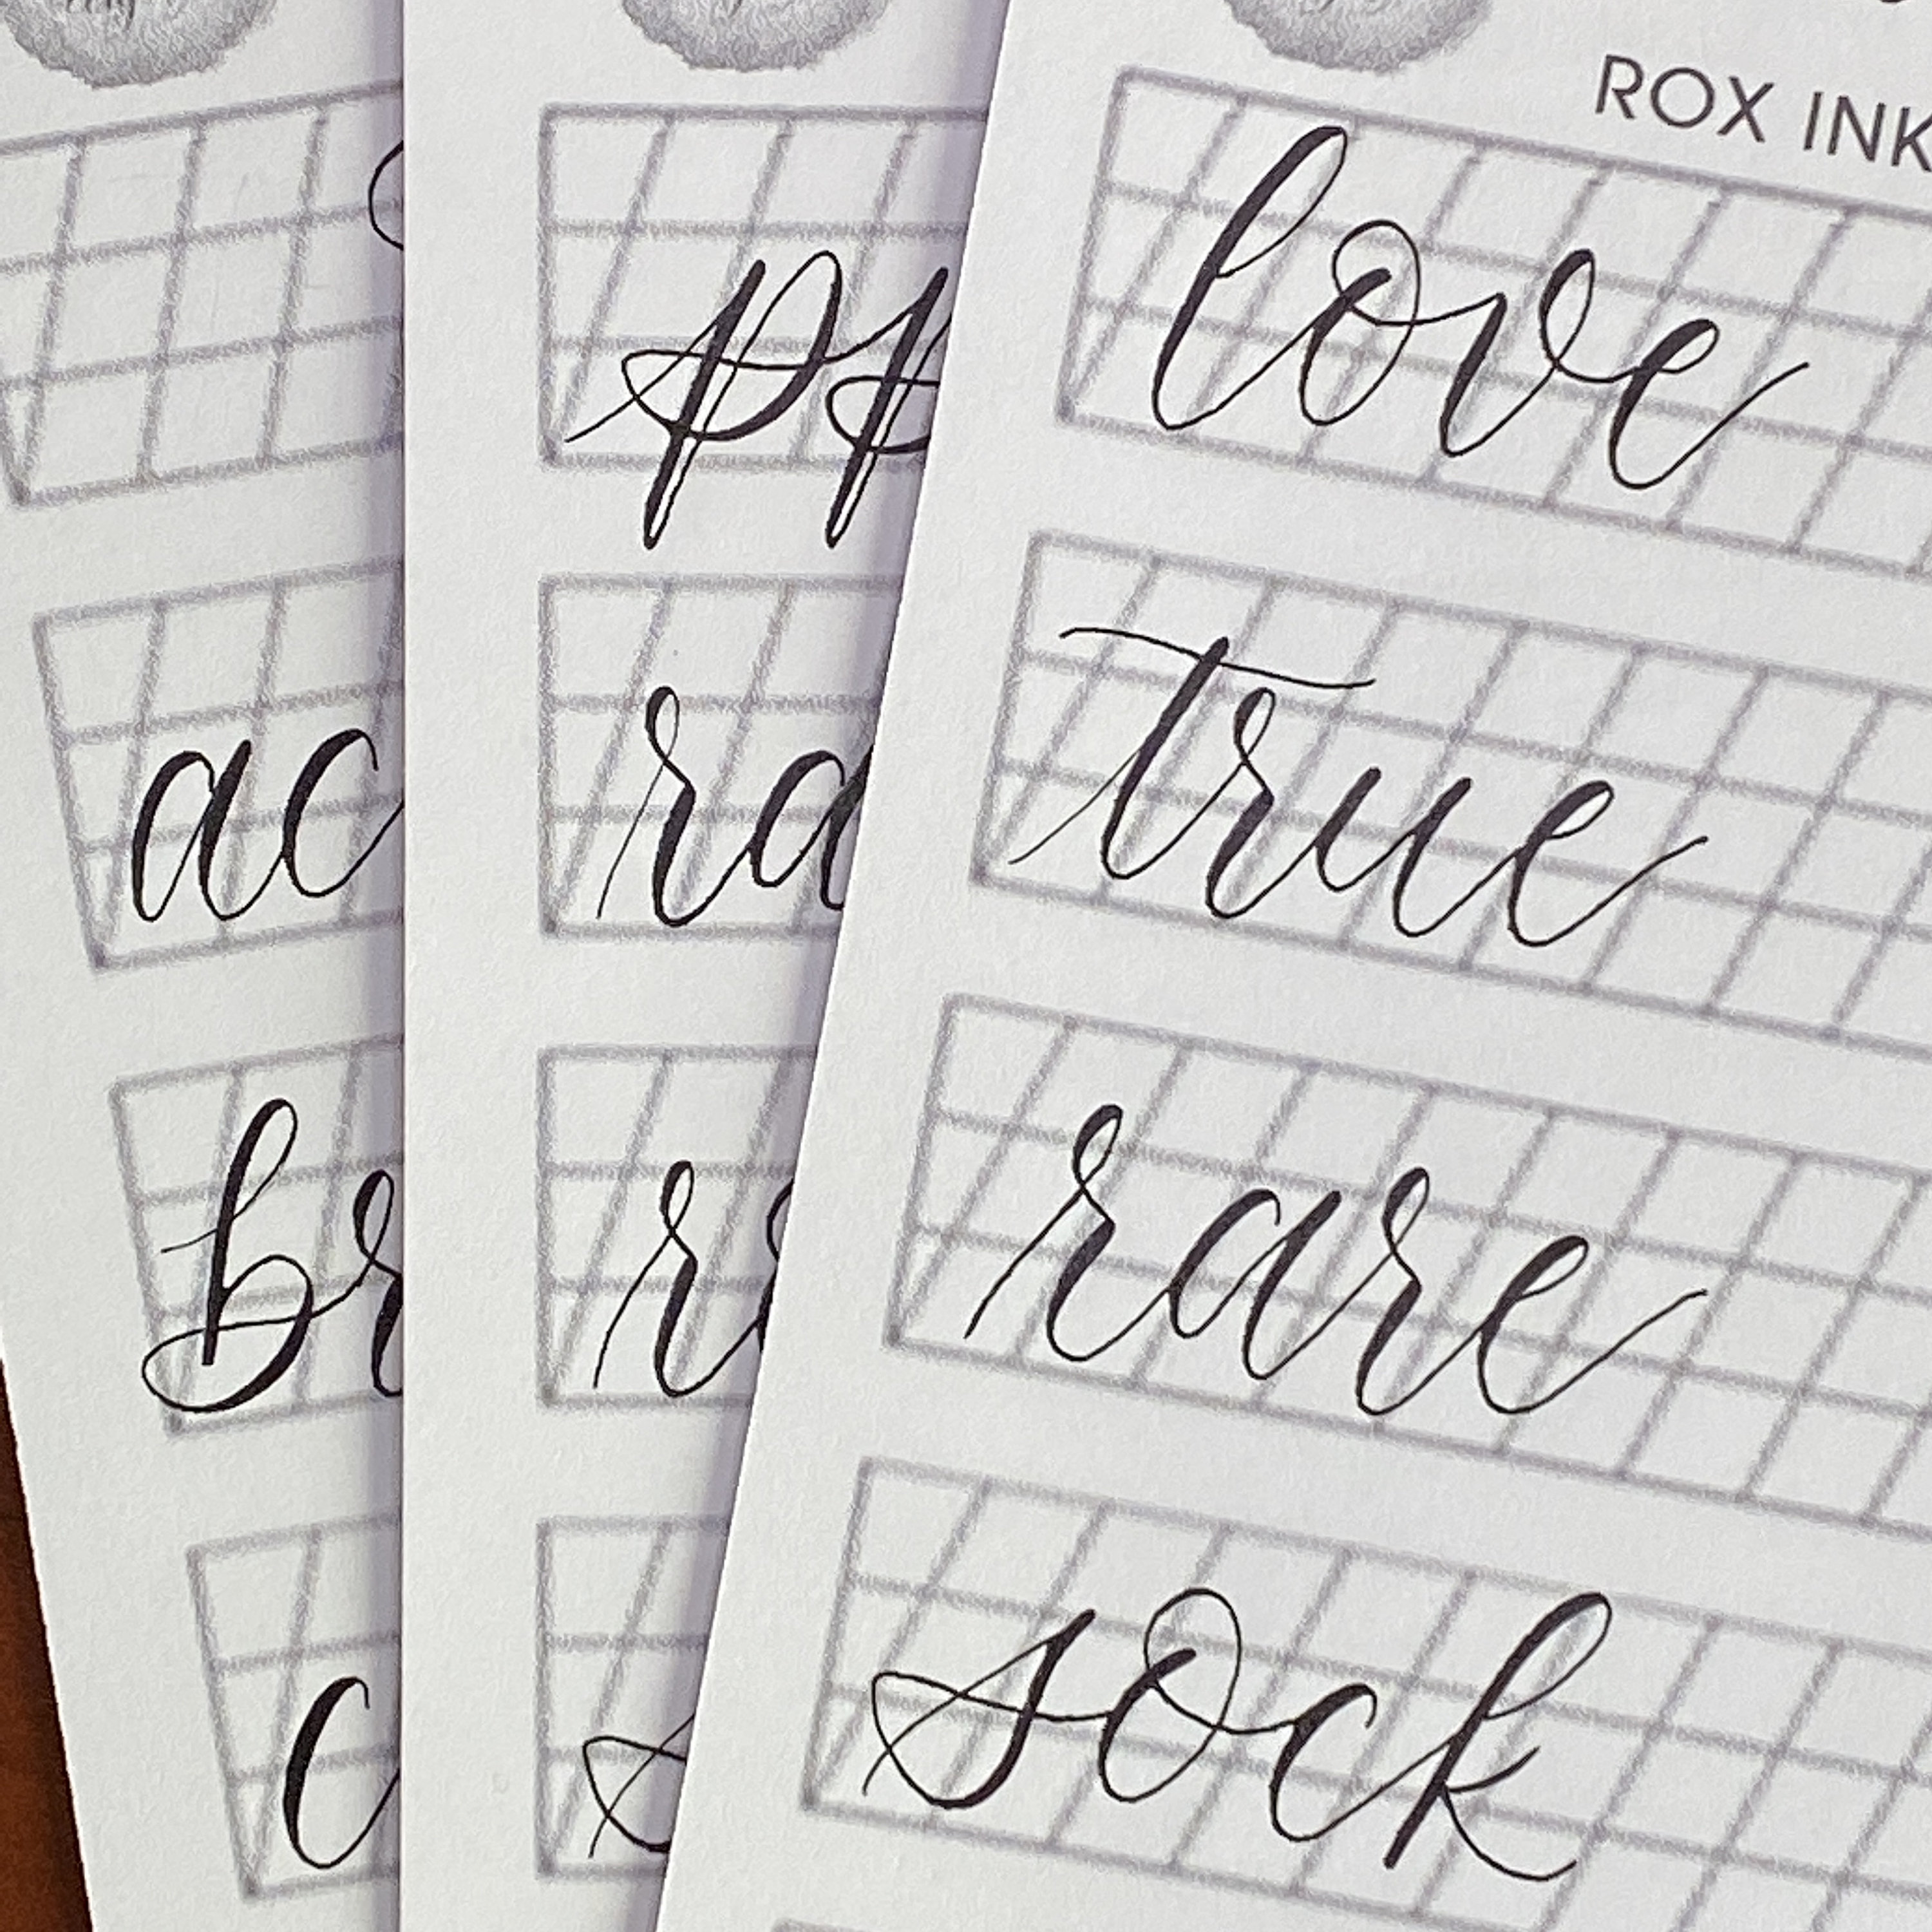 ROX INK
love
true
rare
sock
pp
ra
r
ac
br
c